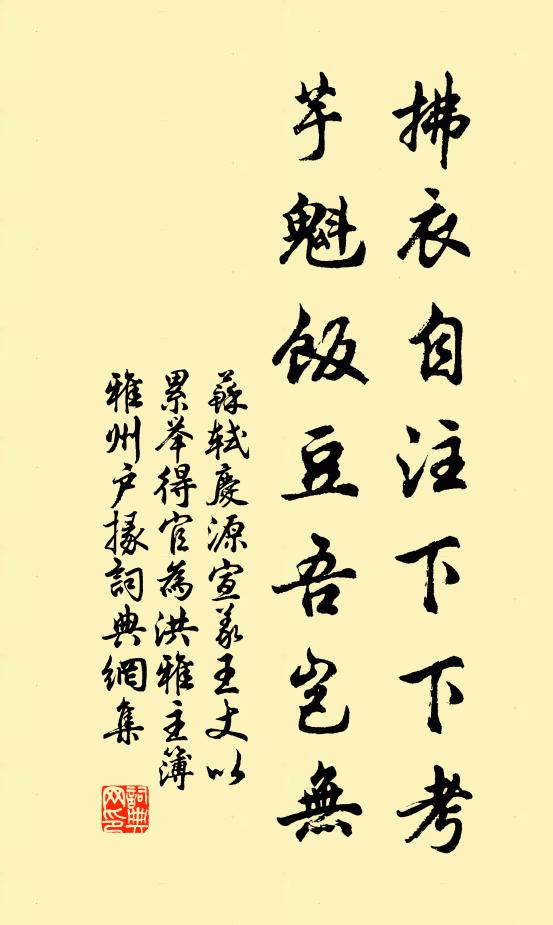 拂衣自注下下考
芋魁飯豆吾豈無
蘇軾慶源宣義王丈以
累举得官為洪雅主簿
雅州户掾詞典網集
詞典
网印